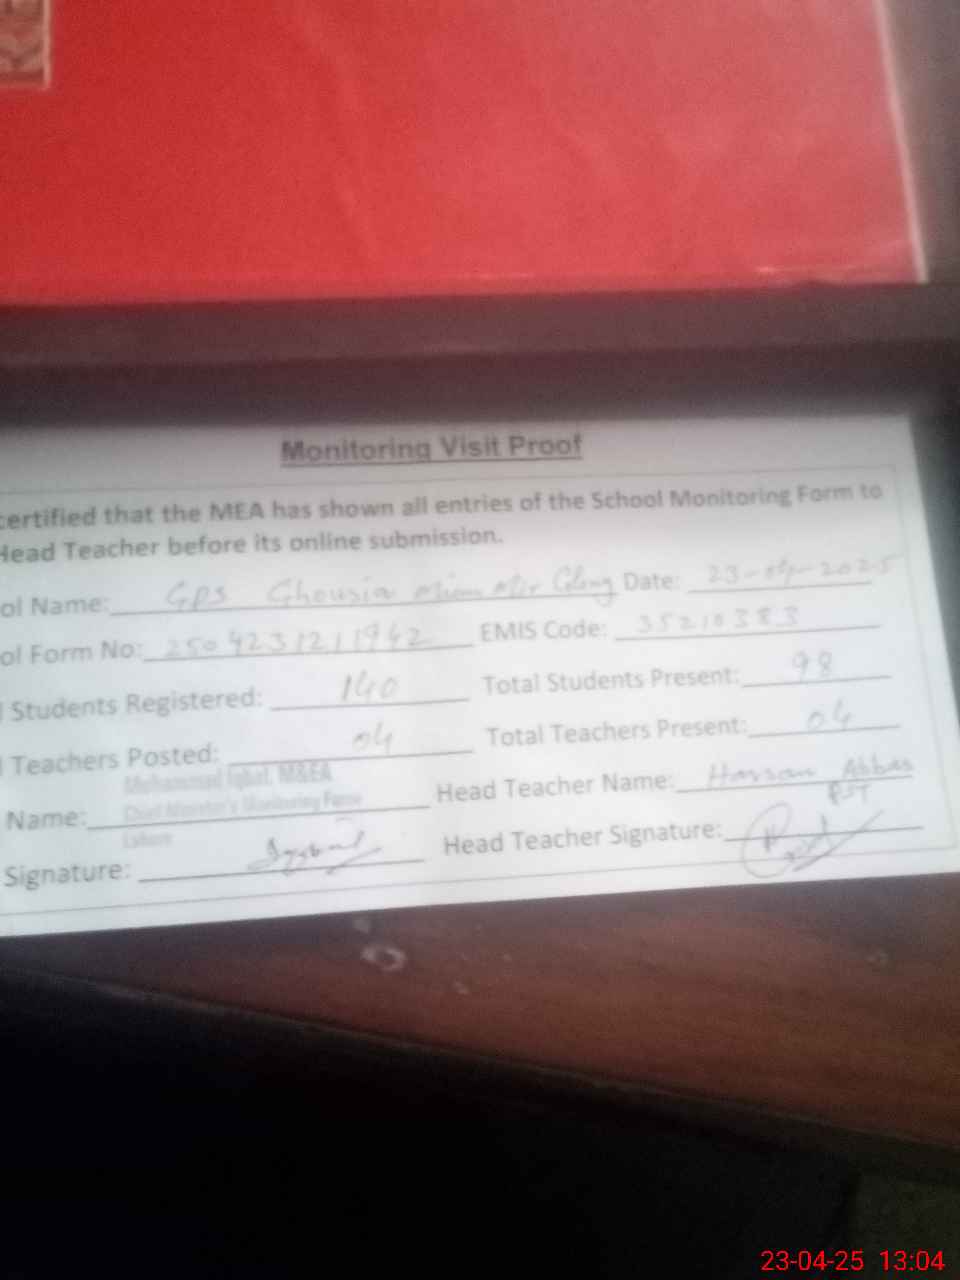 Monitoring Visit Proof
certified that the MEA has shown all entries of the School Monitoring Form to
Head Teacher before its online submission.
ol Name: GPS Ghousia Mian Mir Colony Date: 23-04-2025
ol Form No: 2504231211942 EMIS Code: 35210383
l Students Registered: 140 Total Students Present: 98
l Teachers Posted: 04 Total Teachers Present: 04
Muhammad Iqbal, M&EA
Name: Chief Minister's Monitoring Force Head Teacher Name: Hassan Abbas
Lahore PST
Signature: Head Teacher Signature:
23-04-25 13:04